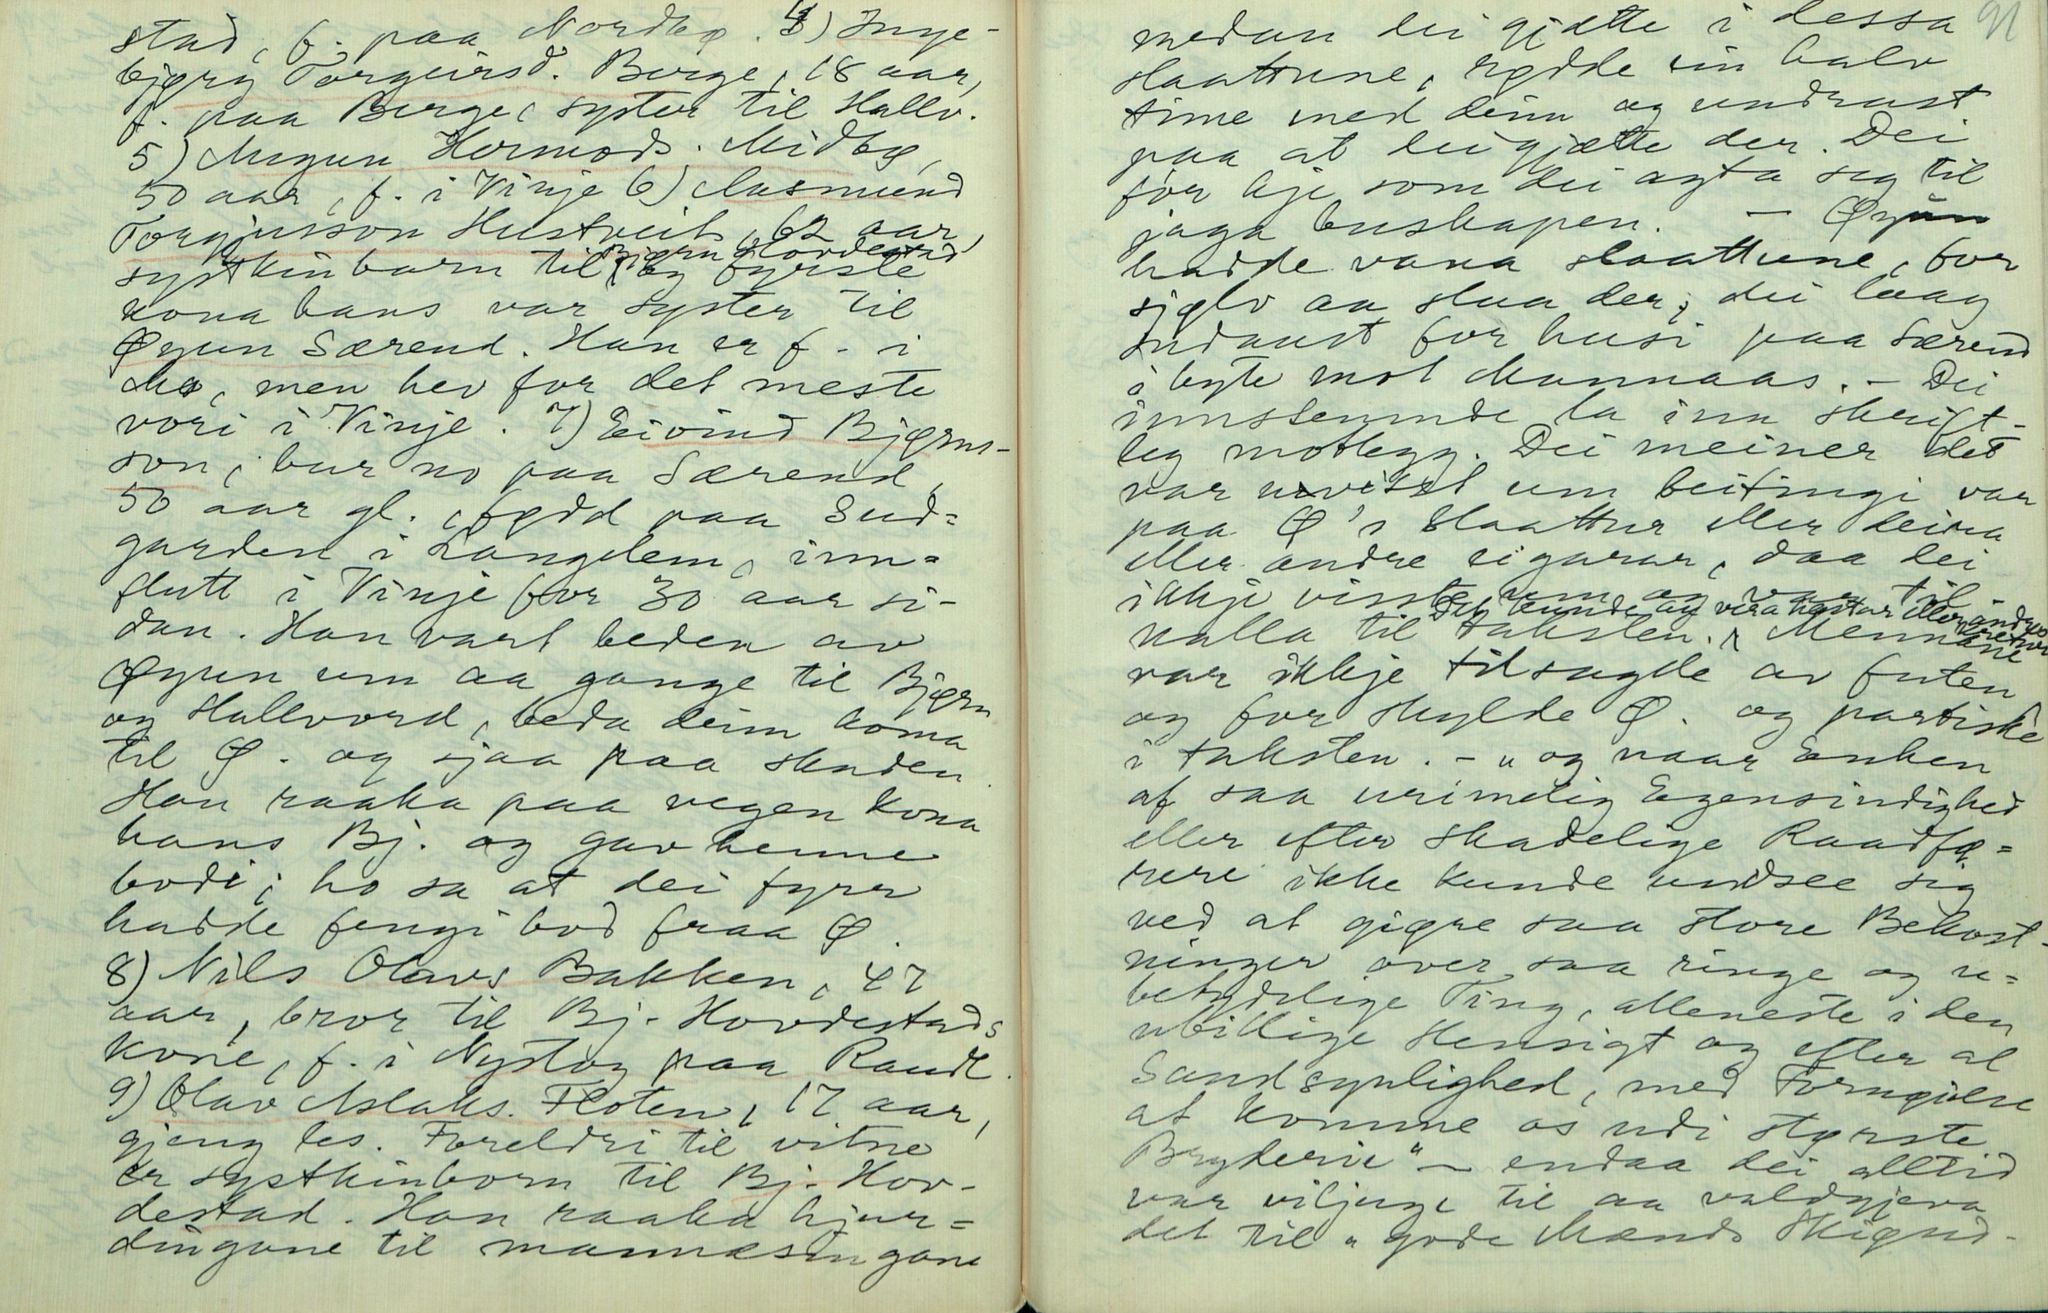 stad, f. paa Nordbø. 4) Inge-
bjørg Torgeirsd. Berge, 18 aar,
f. paa Berge, syster til Hallv.
5) Margun Hermods. Midbø,
50 aar, f. i Vinje 6) Aasmund
Torgjusson Hustveit, 62 aar,
systkinbarn til Bjørn Hovdestad
og fyrste
kona hans var syster til
Øyun Særend. Han er f. i
Mo, men hev for det meste
vori i Vinje. 7) Eivind Bjørns-
son, bur no paa Særend,
50 aar gl., fødd paa Sud-
garden i Langelem, inn-
flutt i Vinje for 30 aar si-
dan. Han vart beden av
Øyun um aa gange til Bjørn
og Hallvord, beda deim koma
til Ø. og sjaa paa skaden.
Han raaka paa vegen kona
hans Bj. og gav henne
bodi; ho sa at dei fyrr
hadde fengi bod fraa Ø.
8) Nils Olavs Bakken, 47
aar, bror til Bj. Hovdestads
kone, f. i Nystog paa Raul.
9) Olav Aslaks. Floten, 17 aar,
gjeng les. Foreldri til vitne
er systkinborn til Bj. Hov-
destad. Han raaka hjur-
dingane til mannæsingane
91
medan dei gjætte i dessa
slaattune, rødde ein halv
time med deim og undrast
paa at dei gjætte der. Dei
for kje som dei agta seg til
jaga buskapen. — Øyun
hadde vana slaattune, for
sjølv aa slaa der; dei laag
sudaust for husi paa Særend
i byte mot Mannaas. – Dei
innstemnde la inn skrift-
leg motlegg. Dei meiner det
var uvisst um beitingi var
paa Ø's slaattur eller deira
eller andre eigarar, daa dei
ikkje visste um og var til-
kalla til taksten. Det kunde og vera hestar eller andre kretur
Mennane
var ikkje tilsagde av futen
og for skylde Ø. og partiske
i taksten. – "og naar Enken
af saa urimelig Egensindighed
eller efter skadelige Raadfø-
rere ikke kunde undsee sig
ved at gigre saa store Bekost-
ninger over saa ringe og u-
betydelige Ting, alleneste i den
ubillige Hensigt og efter al
Sandsynlighed, med Fornøielse
at komme os udi største
Bryderie" – endaa dei alltid
var viljuge til aa valdgjeva
det til "gode Mænds Skiønd-